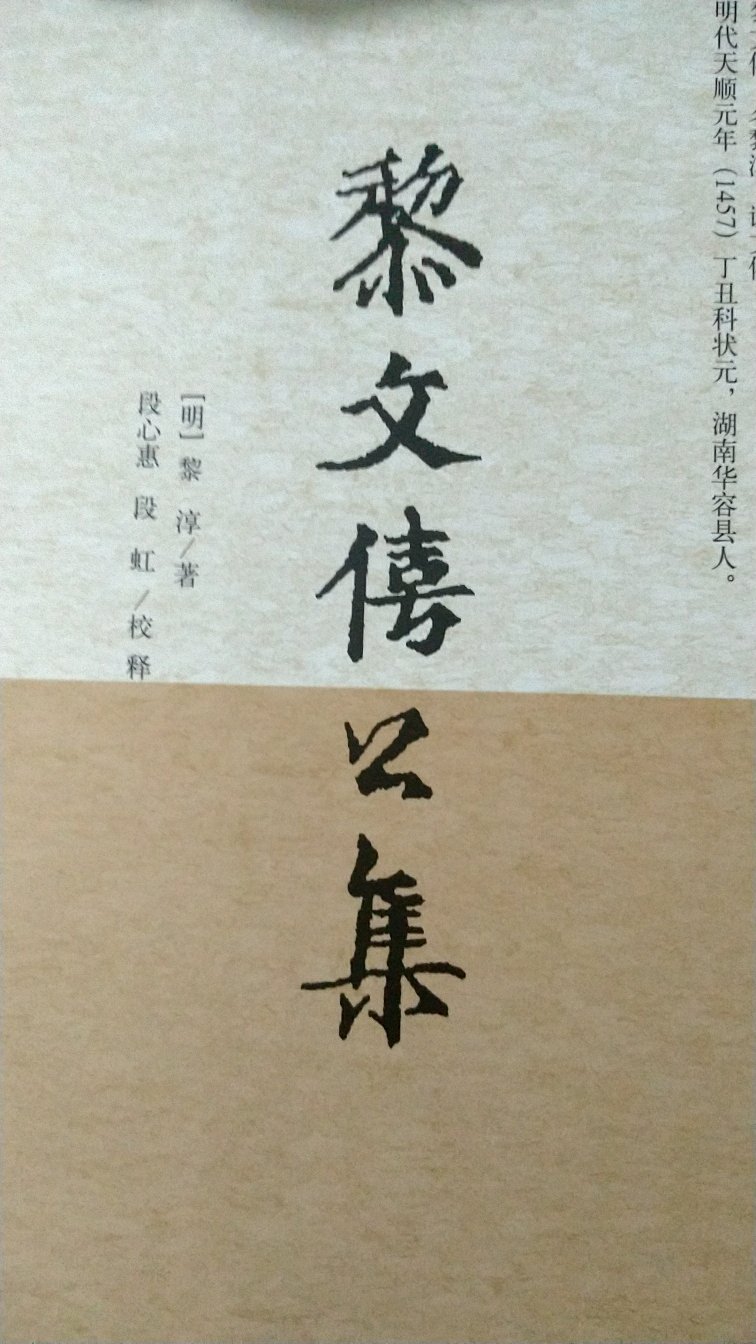 明代天顺元年（1457）丁丑科状元，湖南华容县人。
黎文僖公集
［明］黎 淳／著
段心惠 段 虹／校释